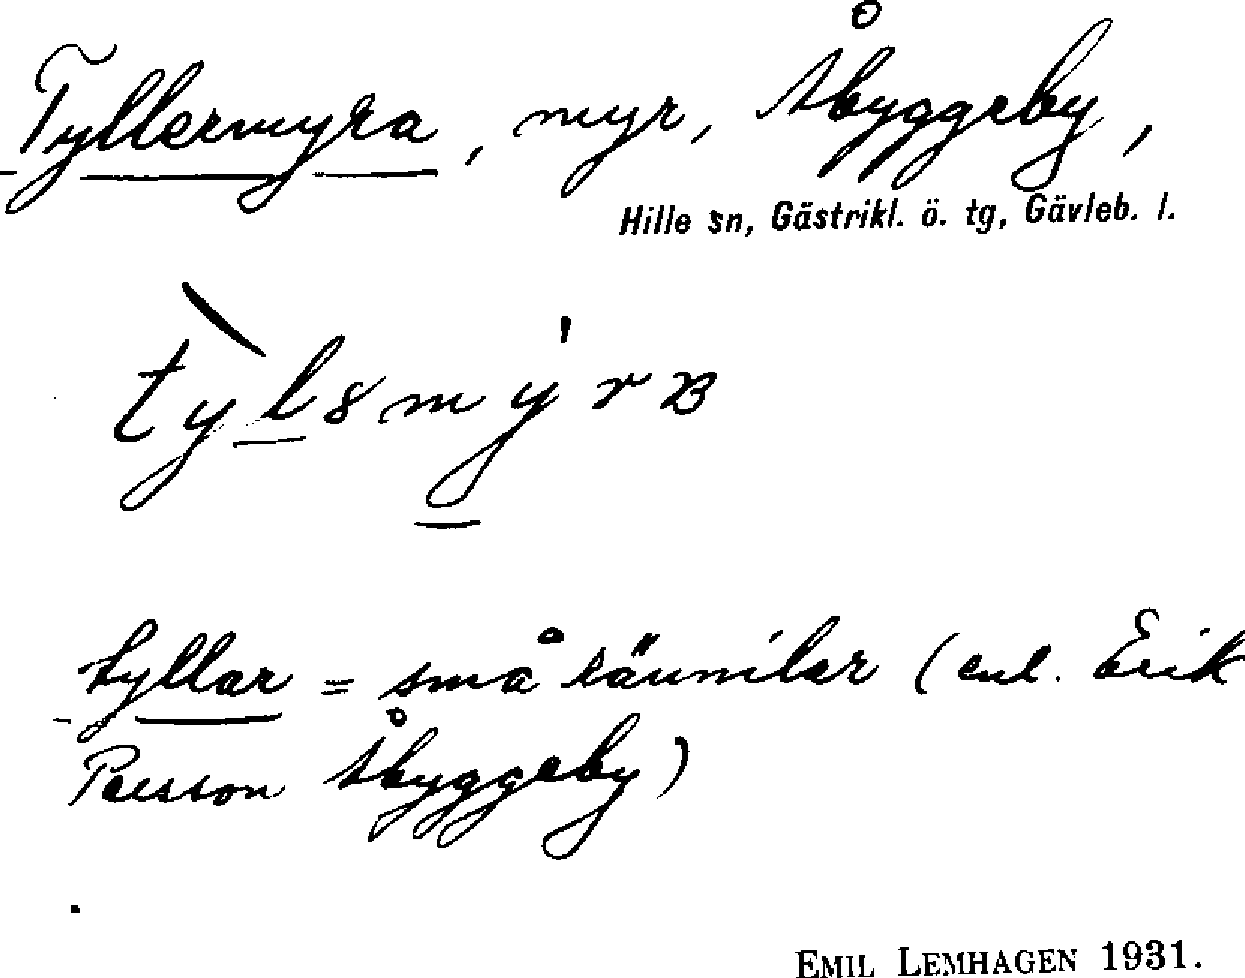 Tyllermyra, myr, Åbyggeby,
Hille sn, Gästrikl. ö. tg, Gävleb. l.
tyllar = små rävmilar (enl. Erik
Persson Åbyggeby)
EMIL LEMHAGEN 1931.